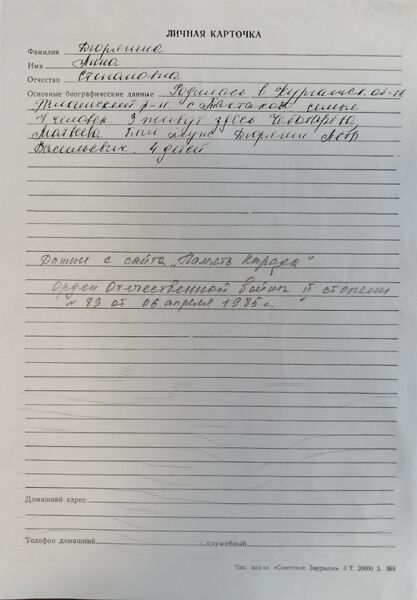 ЛИЧНАЯ КАРТОЧКА
Фамилия Дюрягина
Имя Анна
Отчество Степановна
Основные биографические данные Родилась в Курганск. об-ти
р-н с. семье
7 человек 3 живут здесь Чеботарева,
Матвеева муж Дюрягин Петр
Васильевич. 4 детей
Данные с сайта „Память народа"
Орден Отечественной войны II степени
№ 89 от 06 апреля 1985 г.
Домашний адрес
Телефон домашний служебный
Тип. изд-ва «Советское Зауралье» З Т. 20000 З. 368